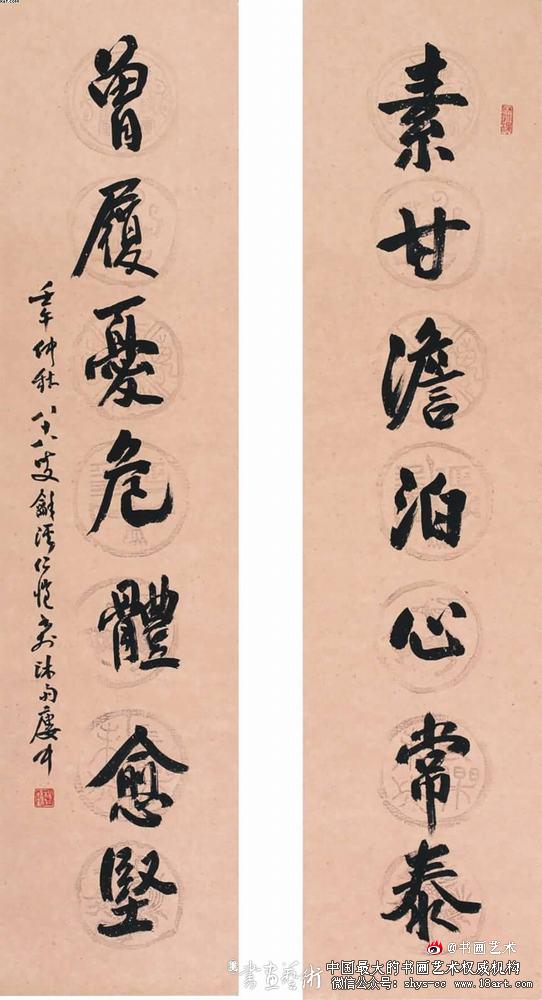 素甘澹泊心常泰
曾履憂危體愈堅
壬午仲秋八十八叟龢溪仁愷書於沐雨廔中
@书画艺术
書画藝術
中国最大的书画艺术权威机构
微信公众号：shys-cc www.18art.com